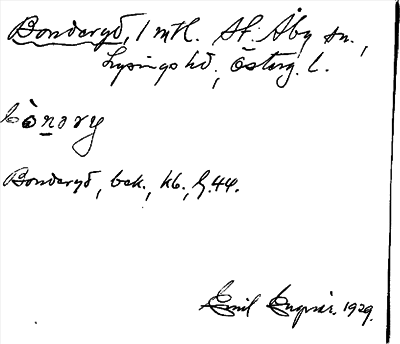 Bonderyd, 1 mtl. St. Åby sn.,
Lysings hd, Österg. l.
bònary
Bonderyd, bek., kb., G.44.
Emil Ungnér. 1929.